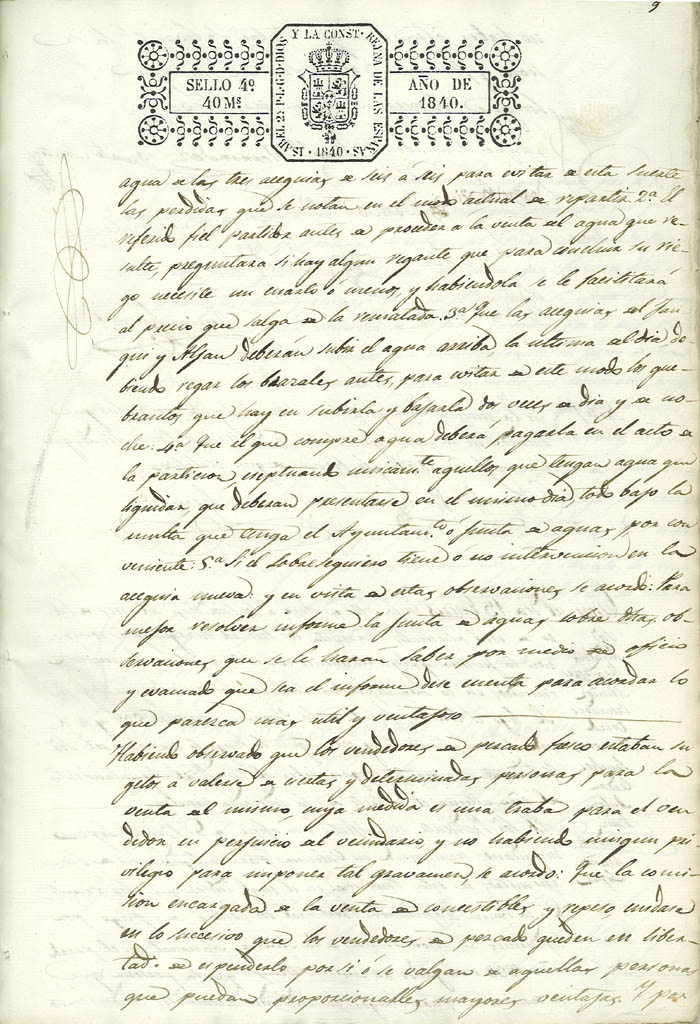 9
ISABEL 2ª P.L.G.D.DIOS Y LA CONST. REYNA DE LAS ESPAÑAS
SELLO 4º
40 Ms
AÑO DE
1840.
1840
agua de las tres acequias de seis á seis para evitar de esta suerte
las perdidas que se notan en el modo actual de repartir. 2.ª El
referido fiel partidor antes de proceder a la venta del agua que re-
sulte, preguntara si hay algun regante que para concluir su rie-
go necesite un cuarto ó menos, y habiendola se le facilitará
al precio que salga de la rematada. 3.ª Que las acequias del Fau-
qui y Aljau deberán subir el agua arriba la ultima del dia de-
biendo regar los brazales antes, para evitar de este modo los que-
brantos que hay en subirla y bajarla dos veces de dia y de no-
che: 4.ª Que el que compre agua deberá pagarla en el acto de
la particion, eseptuando unicam.te aquellos que tengan agua que
liquidar que deberan presentarse en el mismo dia, todo bajo la
multa que tenga el Ayuntam.to o Junta de aguas, por con
veniente: 5.ª Si el sobresequiero tiene ó no intervencion en la
acequia nueva: y en vista de estas observaciones se acordó: Para
mejor resolver informe la Junta de aguas sobre dhas. ob-
servaciones que se le harán saber por medio de oficio
y evacuado que sea el informe dese cuenta para acordar lo
que paresca mas util y ventajoso
Habiendo observado que los vendedores de pescado fresco estaban su
getos a valerse de ciertas y determinadas personas para la
venta del mismo, cuya medida es una traba para el ven
dedor en perjuicio del vecindario, y no habiendo ningun pri-
vilegio para imponer tal gravamen, se acordó: Que la comi-
sion encargada de la venta de comestibles y repeso cuidase
en lo succesivo que los vendedores de pescado queden en liber-
tad de espenderlo por si ó se valgan de aquellas personas
que puedan proporcionalles mayores ventajas. Y por